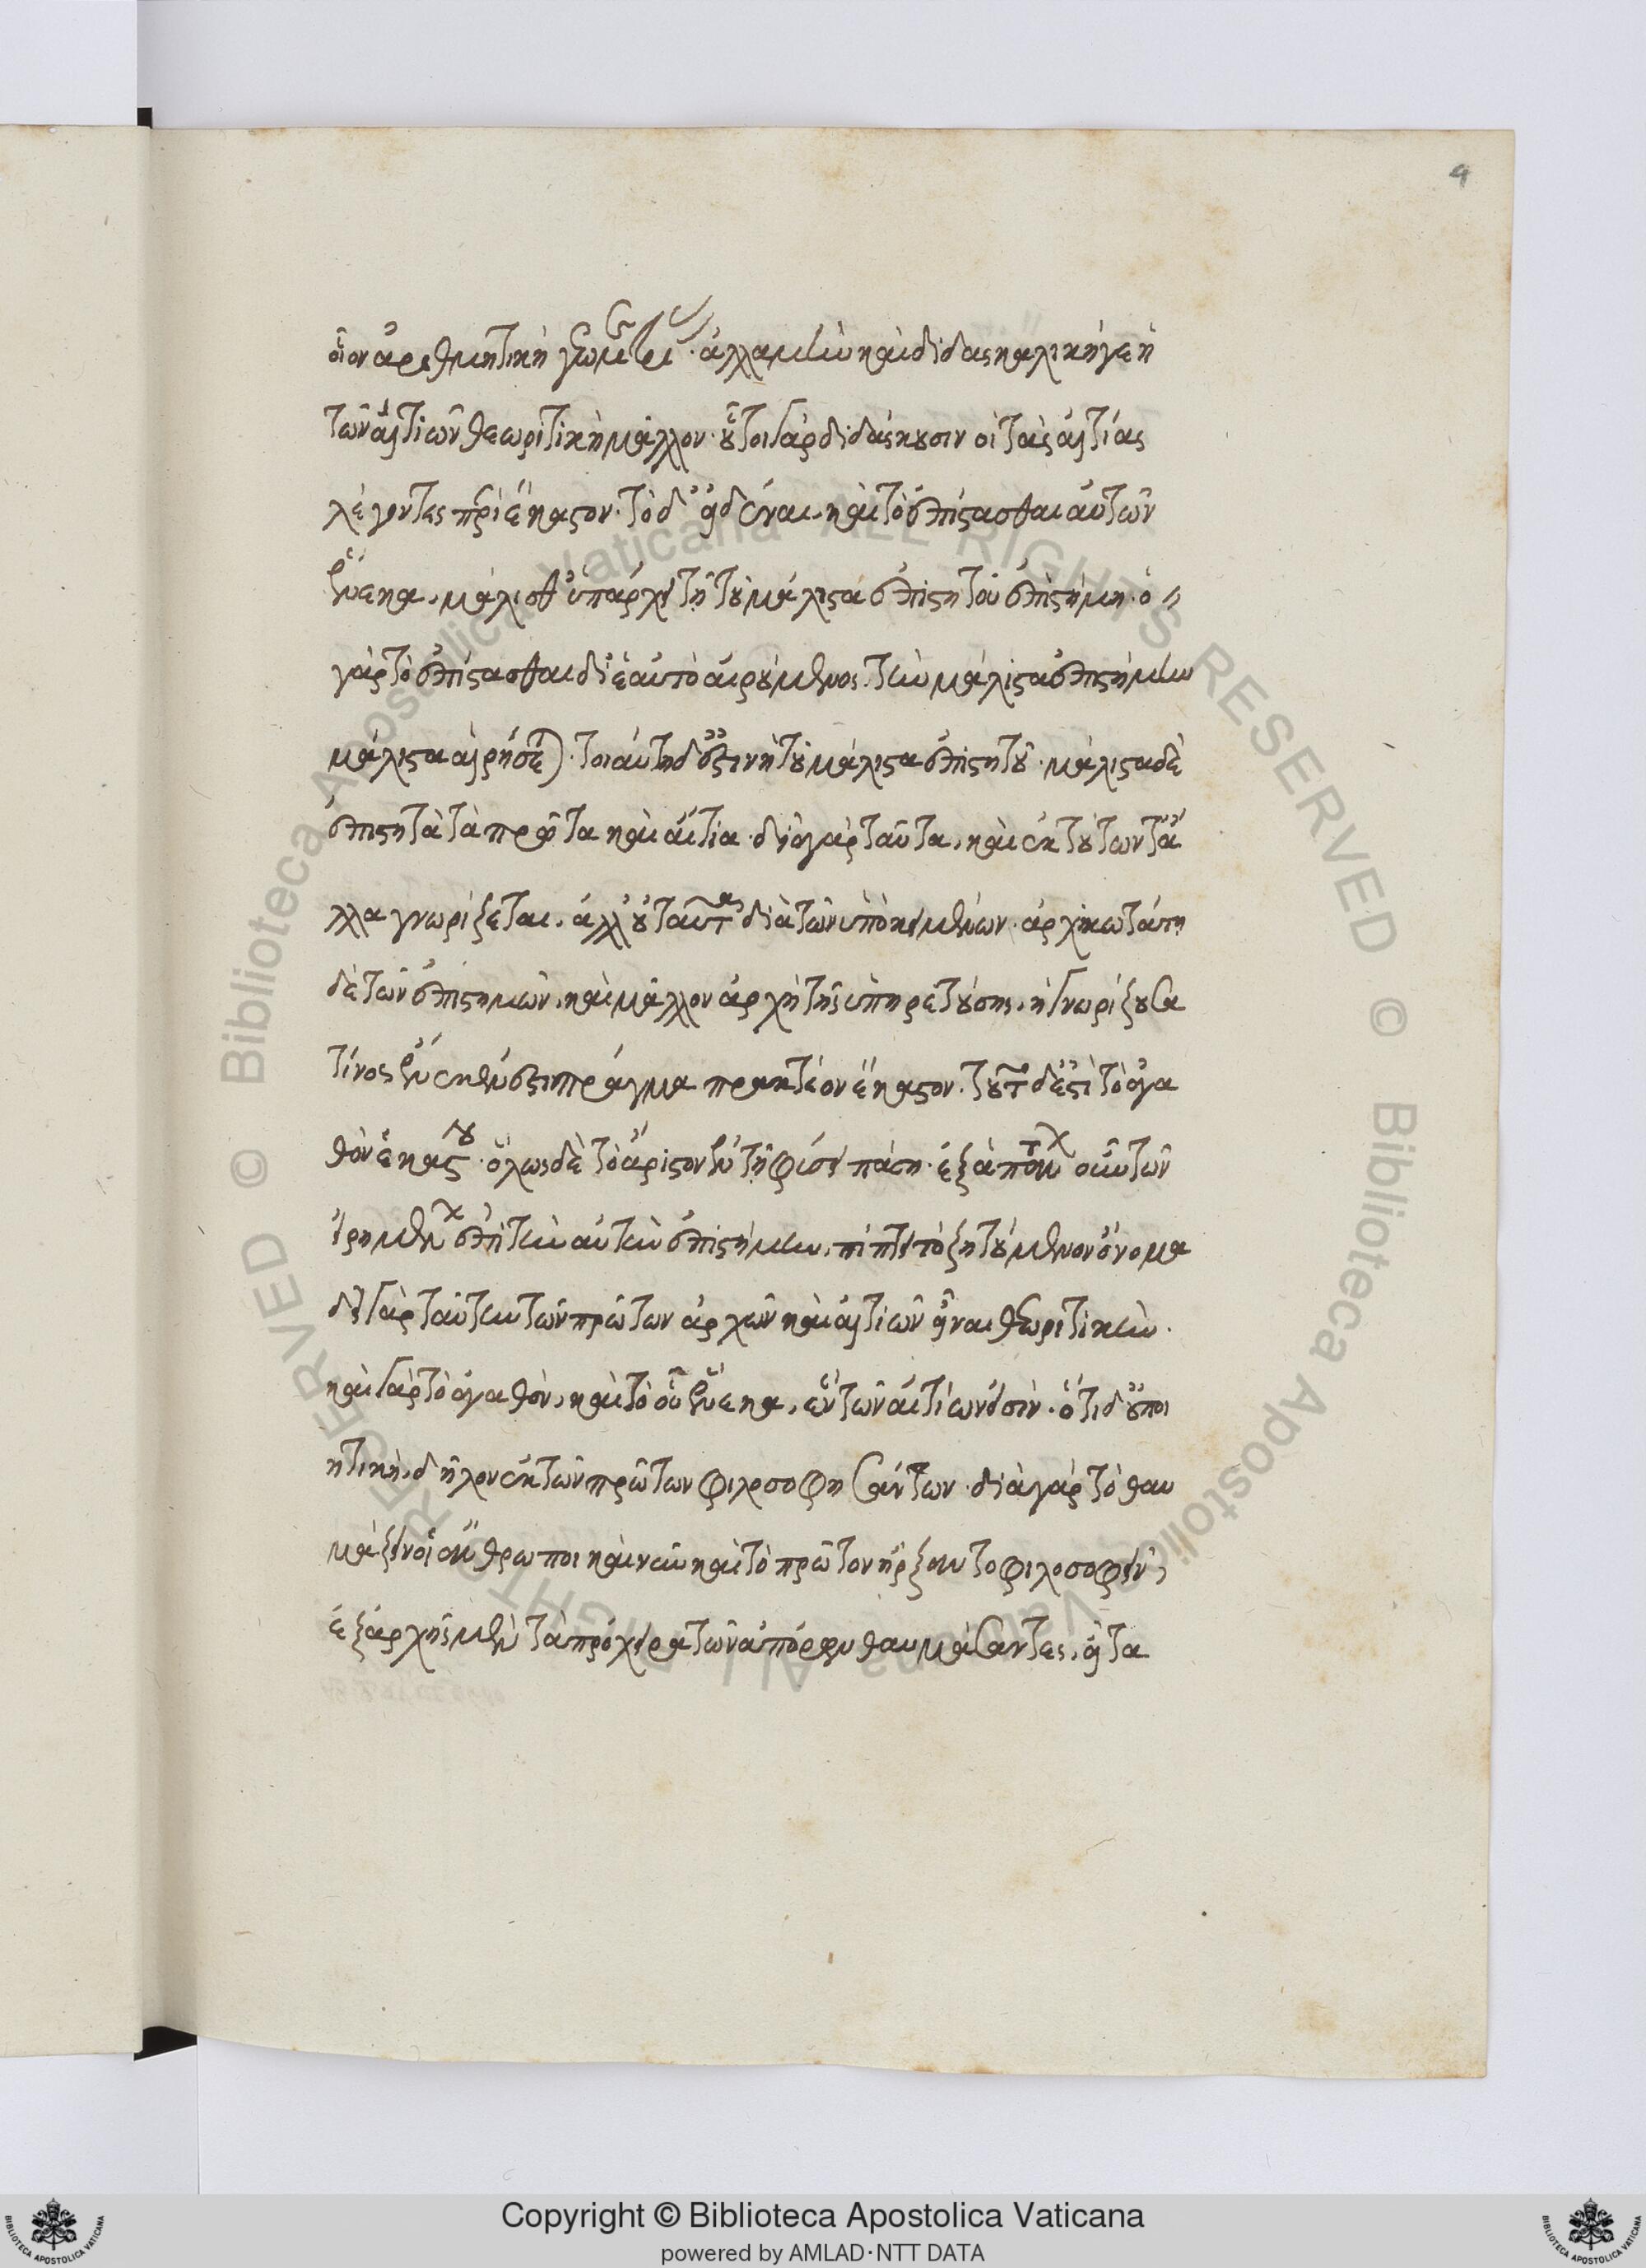 4
οἷον ἀριθμητικὴ γεωμετρίας. ἀλλα μὴν καὶ διδασκαλικήγε ἡ
τῶν αἰτιῶν θεωριτικὴ μᾶλλον. οὗτοι γὰρ διδάσκουσιν οἱ τὰς αἰτίας
λέγοντες περὶ ἑκάστου. τὸ δ' εἰδέναι, καὶ τὸ ἐπίστασθαι αὐτῶν
ἕνεκα, μάλισθ' ὑπάρχει τῇ τοῦ μάλιστα ἐπιστητοῦ ἐπιστήμῃ. ὁ
γὰρ τὸ ἐπίστασθαι δι' ἑαυτὸ αἱρούμενος, τὴν μάλιστα ἐπιστήμην
μάλιστα αἱρήσεται. τοιαύτη δ' ἐστὶν ἡ τοῦ μάλιστα ἐπιστητοῦ. μάλιστα δὲ
ἐπιστητὰ τὰ πρῶτα καὶ αἴτια. διὰ γὰρ ταῦτα, καὶ ἐκ τούτων τἄ
λλα γνωρίζεται, ἀλλ' οὐ ταῦτα διὰ τῶν ὑποκειμένων. ἀρχικωτάτη
δὲ τῶν ἐπιστημῶν, καὶ μᾶλλον ἀρχὴ τῆς ὑπηρετούσης, ἡ γνωρίζουσα
τίνος ἕνεκέν ἐστι πράγμα πρακτέον ἕκαστον. τοῦτο δ' ἐστὶ τὸ ἀγα
θὸν ἑκάστου. ὅλως δὲ τὸ ἄριστον ἐν τῇ φύσει πάσῃ. ἐξ ἁπάντων οὖν τῶν
εἰρημένων ἐπὶ τὴν αὐτὴν ἐπιστήμην, πίπτει τὸ ζητούμενον ὄνομα
δεῖ γὰρ ταύτην τῶν πρώτων ἀρχῶν καὶ αἰτιῶν εἶναι θεωριτικὴν.
καὶ γὰρ τὸ ἀγαθὸν, καὶ τὸ οὗ ἕνεκα, ἓν τῶν αἰτίων ἐσίν. ὅτι δ' οὐ ποι
ητικὴ, δῆλον ἐκ τῶν πρώτων φιλοσοφησάντων. διὰ γὰρ τὸ θαυ
μάζειν οἱ ἄνθρωποι καὶ νῦν καὶ τὸ πρῶτον ἤρξαντο φιλοσοφεῖν,
ἐξ ἀρχῆς μὲν τὰ πρόχειρα τῶν ἀπόρων θαυμάσαντες, εἶτα
© Biblioteca Apostolica Vaticana ALL RIGHTS RESERVED © Biblioteca Apostolica Vaticana ALL RIGHTS RESERVED
Copyright © Biblioteca Apostolica Vaticana
powered by AMLAD·NTT DATA